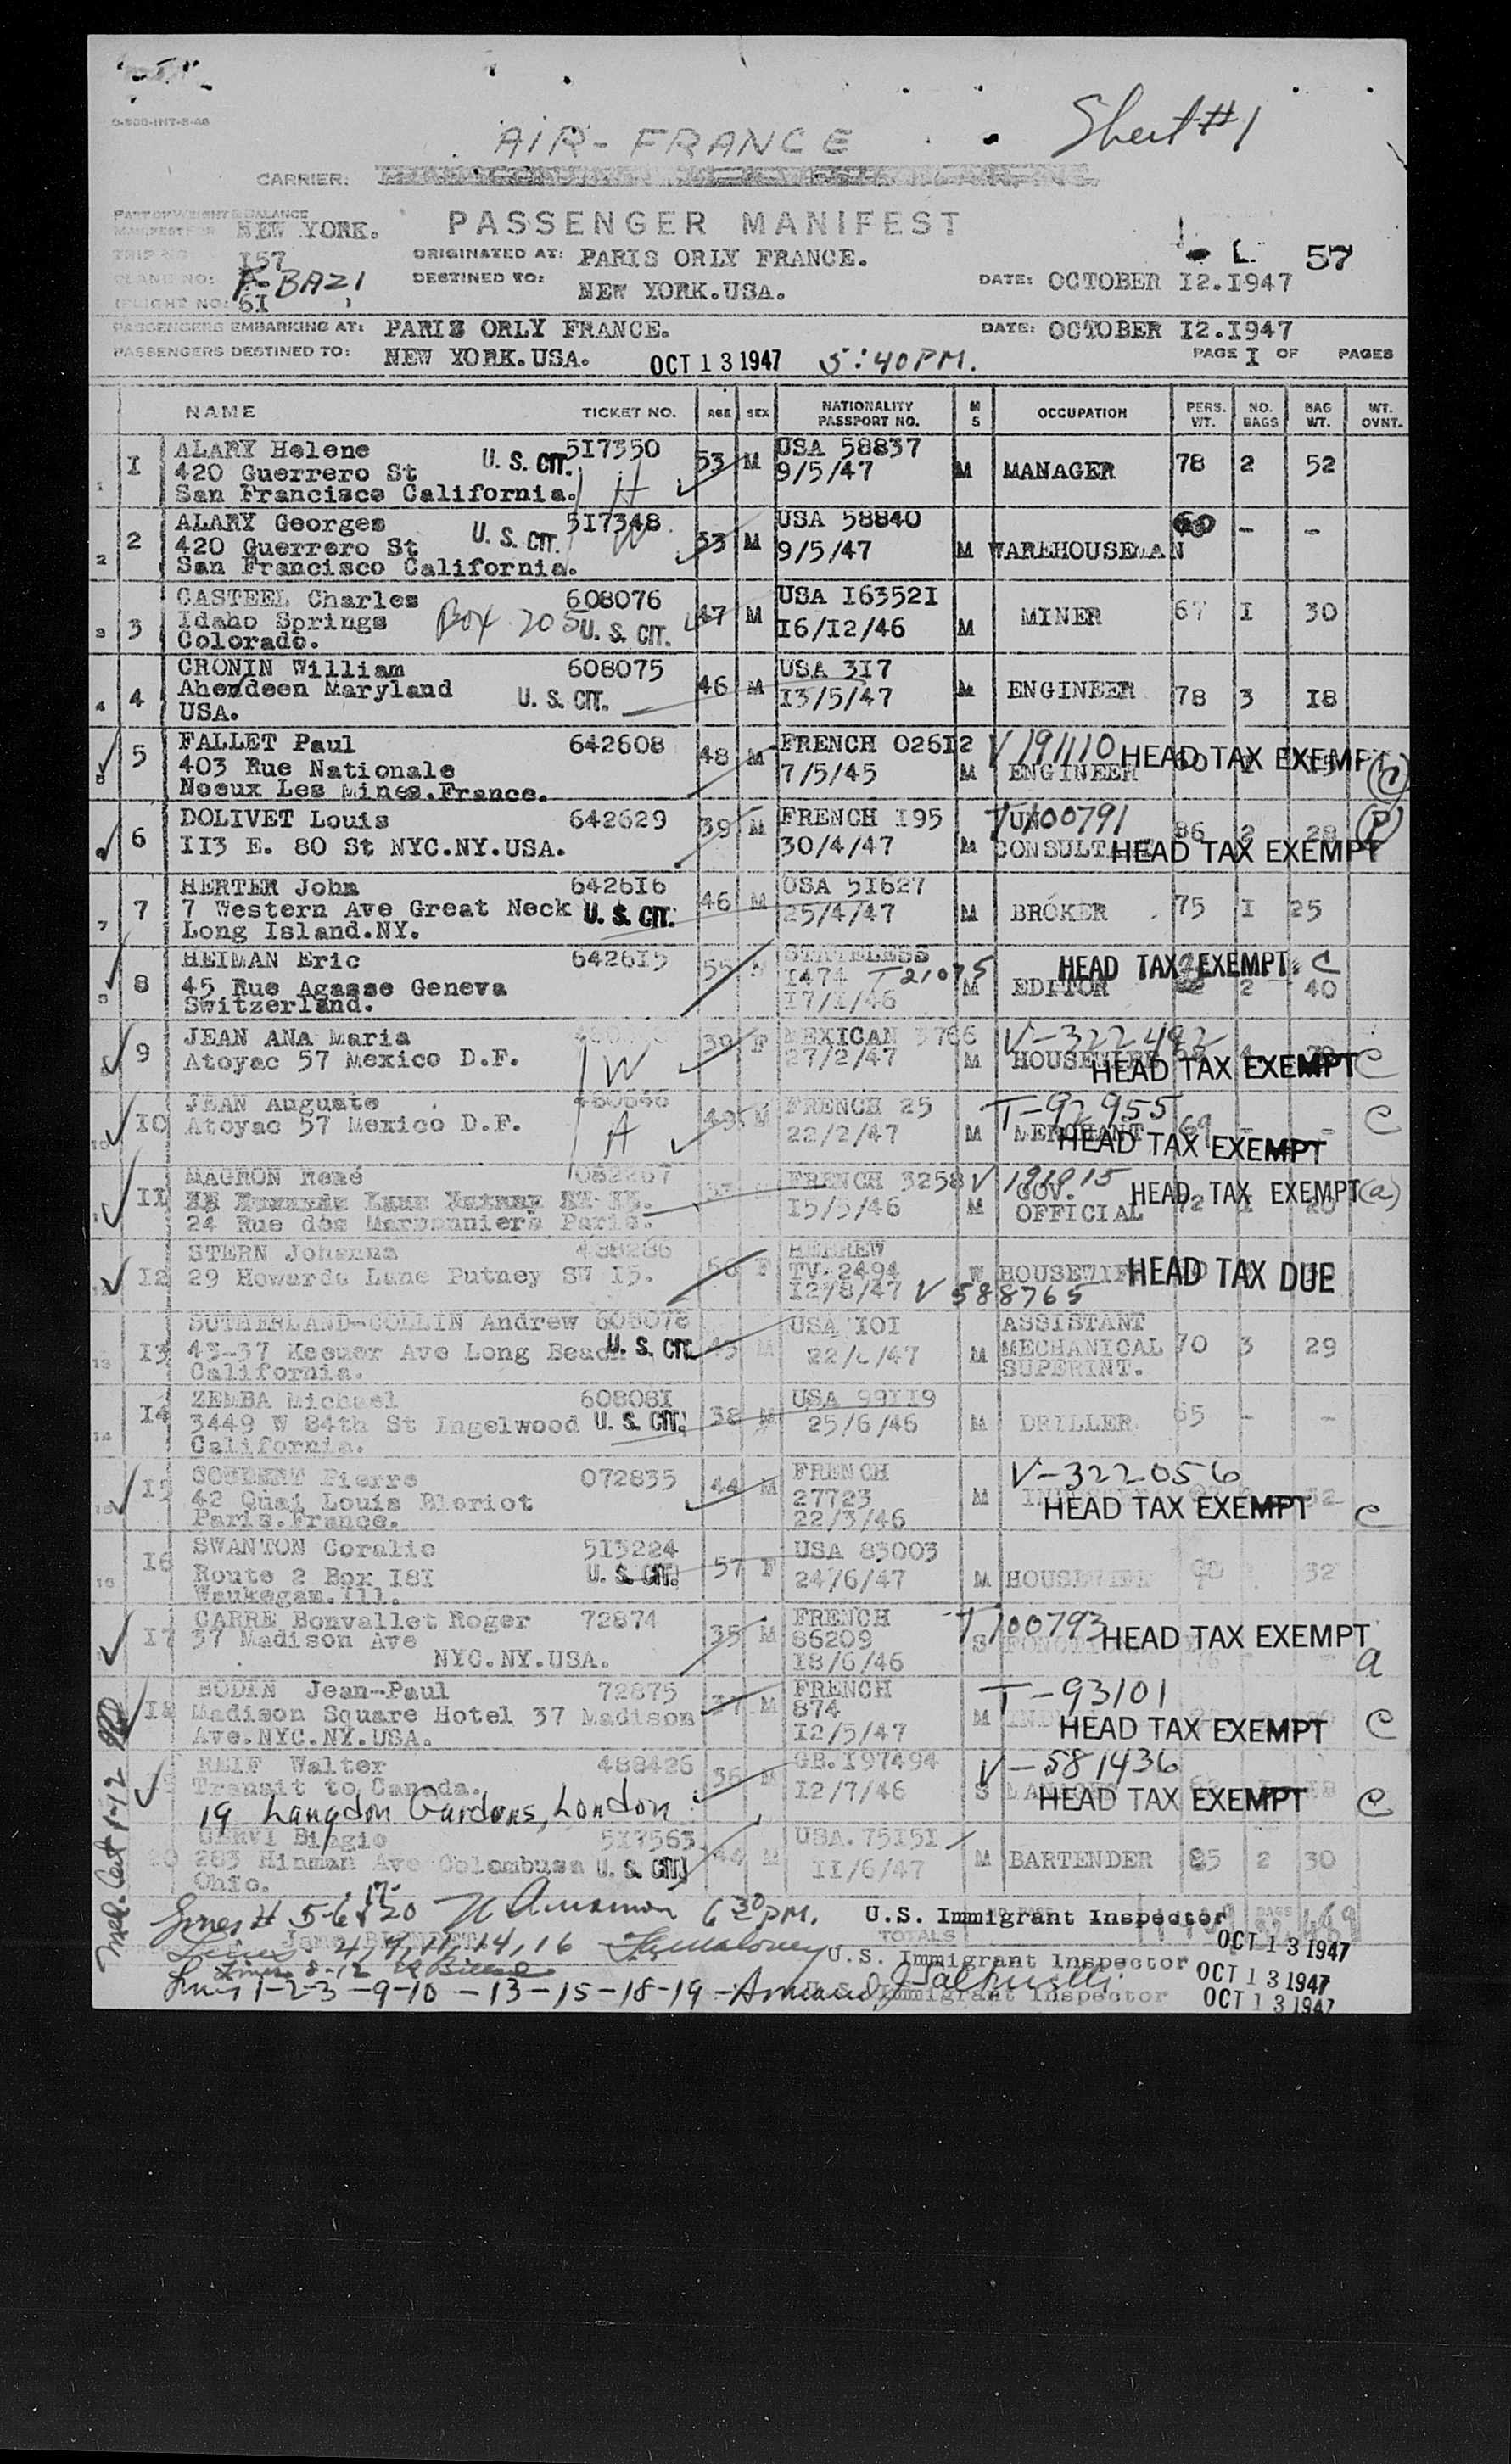 0-500-INT-8-46
AIR-FRANCE
Sheet #1
CARRIER:
PART OF WEIGHT & BALANCE
MANIFEST FOR NEW YORK.
PASSENGER MANIFEST
TRIP NO I57
ORIGINATED AT: PARIS ORLY FRANCE.
L 57
PLANE NO: F-BAZI
DESTINED TO: NEW YORK.USA.
DATE: OCTOBER I2.I947
(FLIGHT NO: 6I )
PASSENGERS EMBARKING AT: PARIS ORLY FRANCE.
DATE: OCTOBER I2.I947
PASSENGERS DESTINED TO: NEW YORK.USA. OCT 13 1947 5:40 PM.
PAGE I OF PAGES
NAME TICKET NO. AGE SEX NATIONALITY PASSPORT NO. M S OCCUPATION PERS. WT. NO. BAGS BAG WT. WT. OVNT.
1 I ALARY Helene U. S. CIT. 5I7350 53 M USA 58837 M MANAGER 78 2 52
420 Guerrero St H 9/5/47
San Francisco California.
2 2 ALARY Georges U. S. CIT. 5I7348 W 53 M USA 58840 M WAREHOUSEMAN 60 - -
420 Guerrero St 9/5/47
San Francisco California.
3 3 CASTEEL Charles 608076 47 M USA I6352I M MINER 67 I 30
Idaho Springs Box 205 U. S. CIT. I6/I2/46
Colorado.
4 4 CRONIN William 608075 46 M USA 3I7 M ENGINEER 78 3 I8
Aberdeen Maryland U. S. CIT. I3/5/47
USA.
5 FALLET Paul 642608 48 M FRENCH 026I2 M V 191110 ENGINEER HEAD TAX EXEMPT C
403 Rue Nationale 7/5/45
Noeux Les Mines.France.
6 DOLIVET Louis 642629 39 M FRENCH I95 M T 100791 UN 86 2 28 P
II3 E. 80 St NYC.NY.USA. 30/4/47 CONSULTANT HEAD TAX EXEMPT
7 7 HERTER John 6426I6 46 M USA 5I627 M BROKER 75 I 25
7 Western Ave Great Neck U. S. CIT. 25/4/47
Long Island.NY.
8 8 HEIMAN Eric 6426I5 55 M STATELESS HEAD TAX EXEMPT C
45 Rue Agasse Geneva I474 T 21075 M EDITOR 2 40
Switzerland. I7/I/46
9 JEAN ANA Maria W 39 F MEXICAN 3766 M V-322492 HOUSEWIFE
Atoyac 57 Mexico D.F. 27/2/47 HEAD TAX EXEMPT C
10 I0 JEAN Auguste 480646 H 49 M FRENCH 25 M T-92955 MERCHANT 69 - - C
Atoyac 57 Mexico D.F. 22/2/47 HEAD TAX EXEMPT
II MAGRON René 082267 FRENCH 3258 V 191915 GOV. OFFICIAL 72 HEAD TAX EXEMPT (a)
24 Rue des Marronniers Paris. I5/5/46 M
I2 STERN Johanna 488286 66 F HEBREW
29 Howards Lane Putney SW I5. TV. 2494 W HOUSEWIFE HEAD TAX DUE
I2/8/47 V 588765
13 I3 SUTHERLAND-COLLIN Andrew 608078 45 M USA I0I ASSISTANT
43-37 Keever Ave Long Beach U. S. CIT. 22/ /47 M MECHANICAL 70 3 29
California. SUPERINT.
14 I4 ZEMBA Michael 60808I 38 M USA 99II9
3449 W 84th St Ingelwood U. S. CIT. 25/6/46 M DRILLER 65 - -
California.
15 I5 Pierre 072835 44 M FRENCH V-322056
42 Quai Louis Bleriot 27723 M HEAD TAX EXEMPT C
Paris.France. 22/3/46
16 I6 SWANTON Coralie 5I3224 57 F USA 83003
Route 2 Box I8I U. S. CIT. 24/6/47 M HOUSEWIFE 32
Waukegan.Ill.
I7 CARRE Bonvallet Roger 72874 35 M FRENCH T 100793
37 Madison Ave 86209 S HEAD TAX EXEMPT
NYC.NY.USA. I8/6/46 a
I8 BODIN Jean-Paul 72875 37 M FRENCH T-93101
Madison Square Hotel 37 Madison 874 M HEAD TAX EXEMPT C
Ave.NYC.NY.USA. I2/5/47
REIF Walter 488426 36 M GB.I97494 V-581436
Transit to Canada. I2/7/46 S HEAD TAX EXEMPT C
19 Langdon Gardens, London
20 Biagio 5I7563 44 M USA.75I5I
283 Hinman Ave Colombuss U. S. CIT. II/6/47 M BARTENDER 85 2 30
Ohio.
Med. Cert 1-12
Lines # 5-6 17 & 20 6 30 PM. U.S. Immigrant Inspector
TOTALS OCT 13 1947
Lines 4, 7, 11, 14, 16 U.S. Immigrant Inspector OCT 13 1947
Lines 8-12
Lines 1-2-3-9-10-13-15-18-19 - U.S. Immigrant Inspector OCT 13 1947